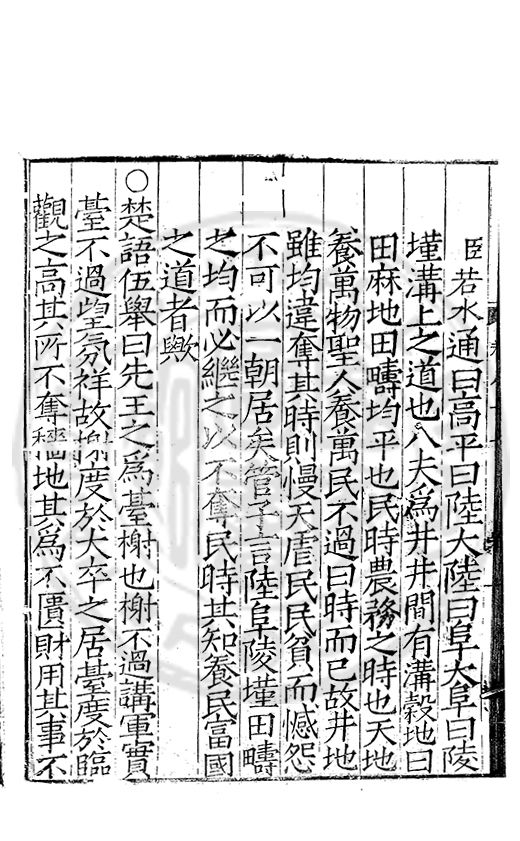 臣若水通曰高平曰陸大陸曰阜大阜曰陵
墐溝上之道也八夫爲井井間有溝穀地曰
田麻地田疇均平也民時農務之時也天地
養萬物聖人養萬民不過曰時而已故井地
雖均違奪其時則慢天虐民民貧而憾怨
不可以一朝居矣管子言陸阜陵墐田疇
之均而必繼之以不奪民時其知養民富國
之道者歟
○楚語伍舉曰先王之爲臺榭也榭不過講軍實
臺不過望氛祥故榭度於大卒之居臺度於臨
觀之高其所不奪穡地其爲不匱財用其事不